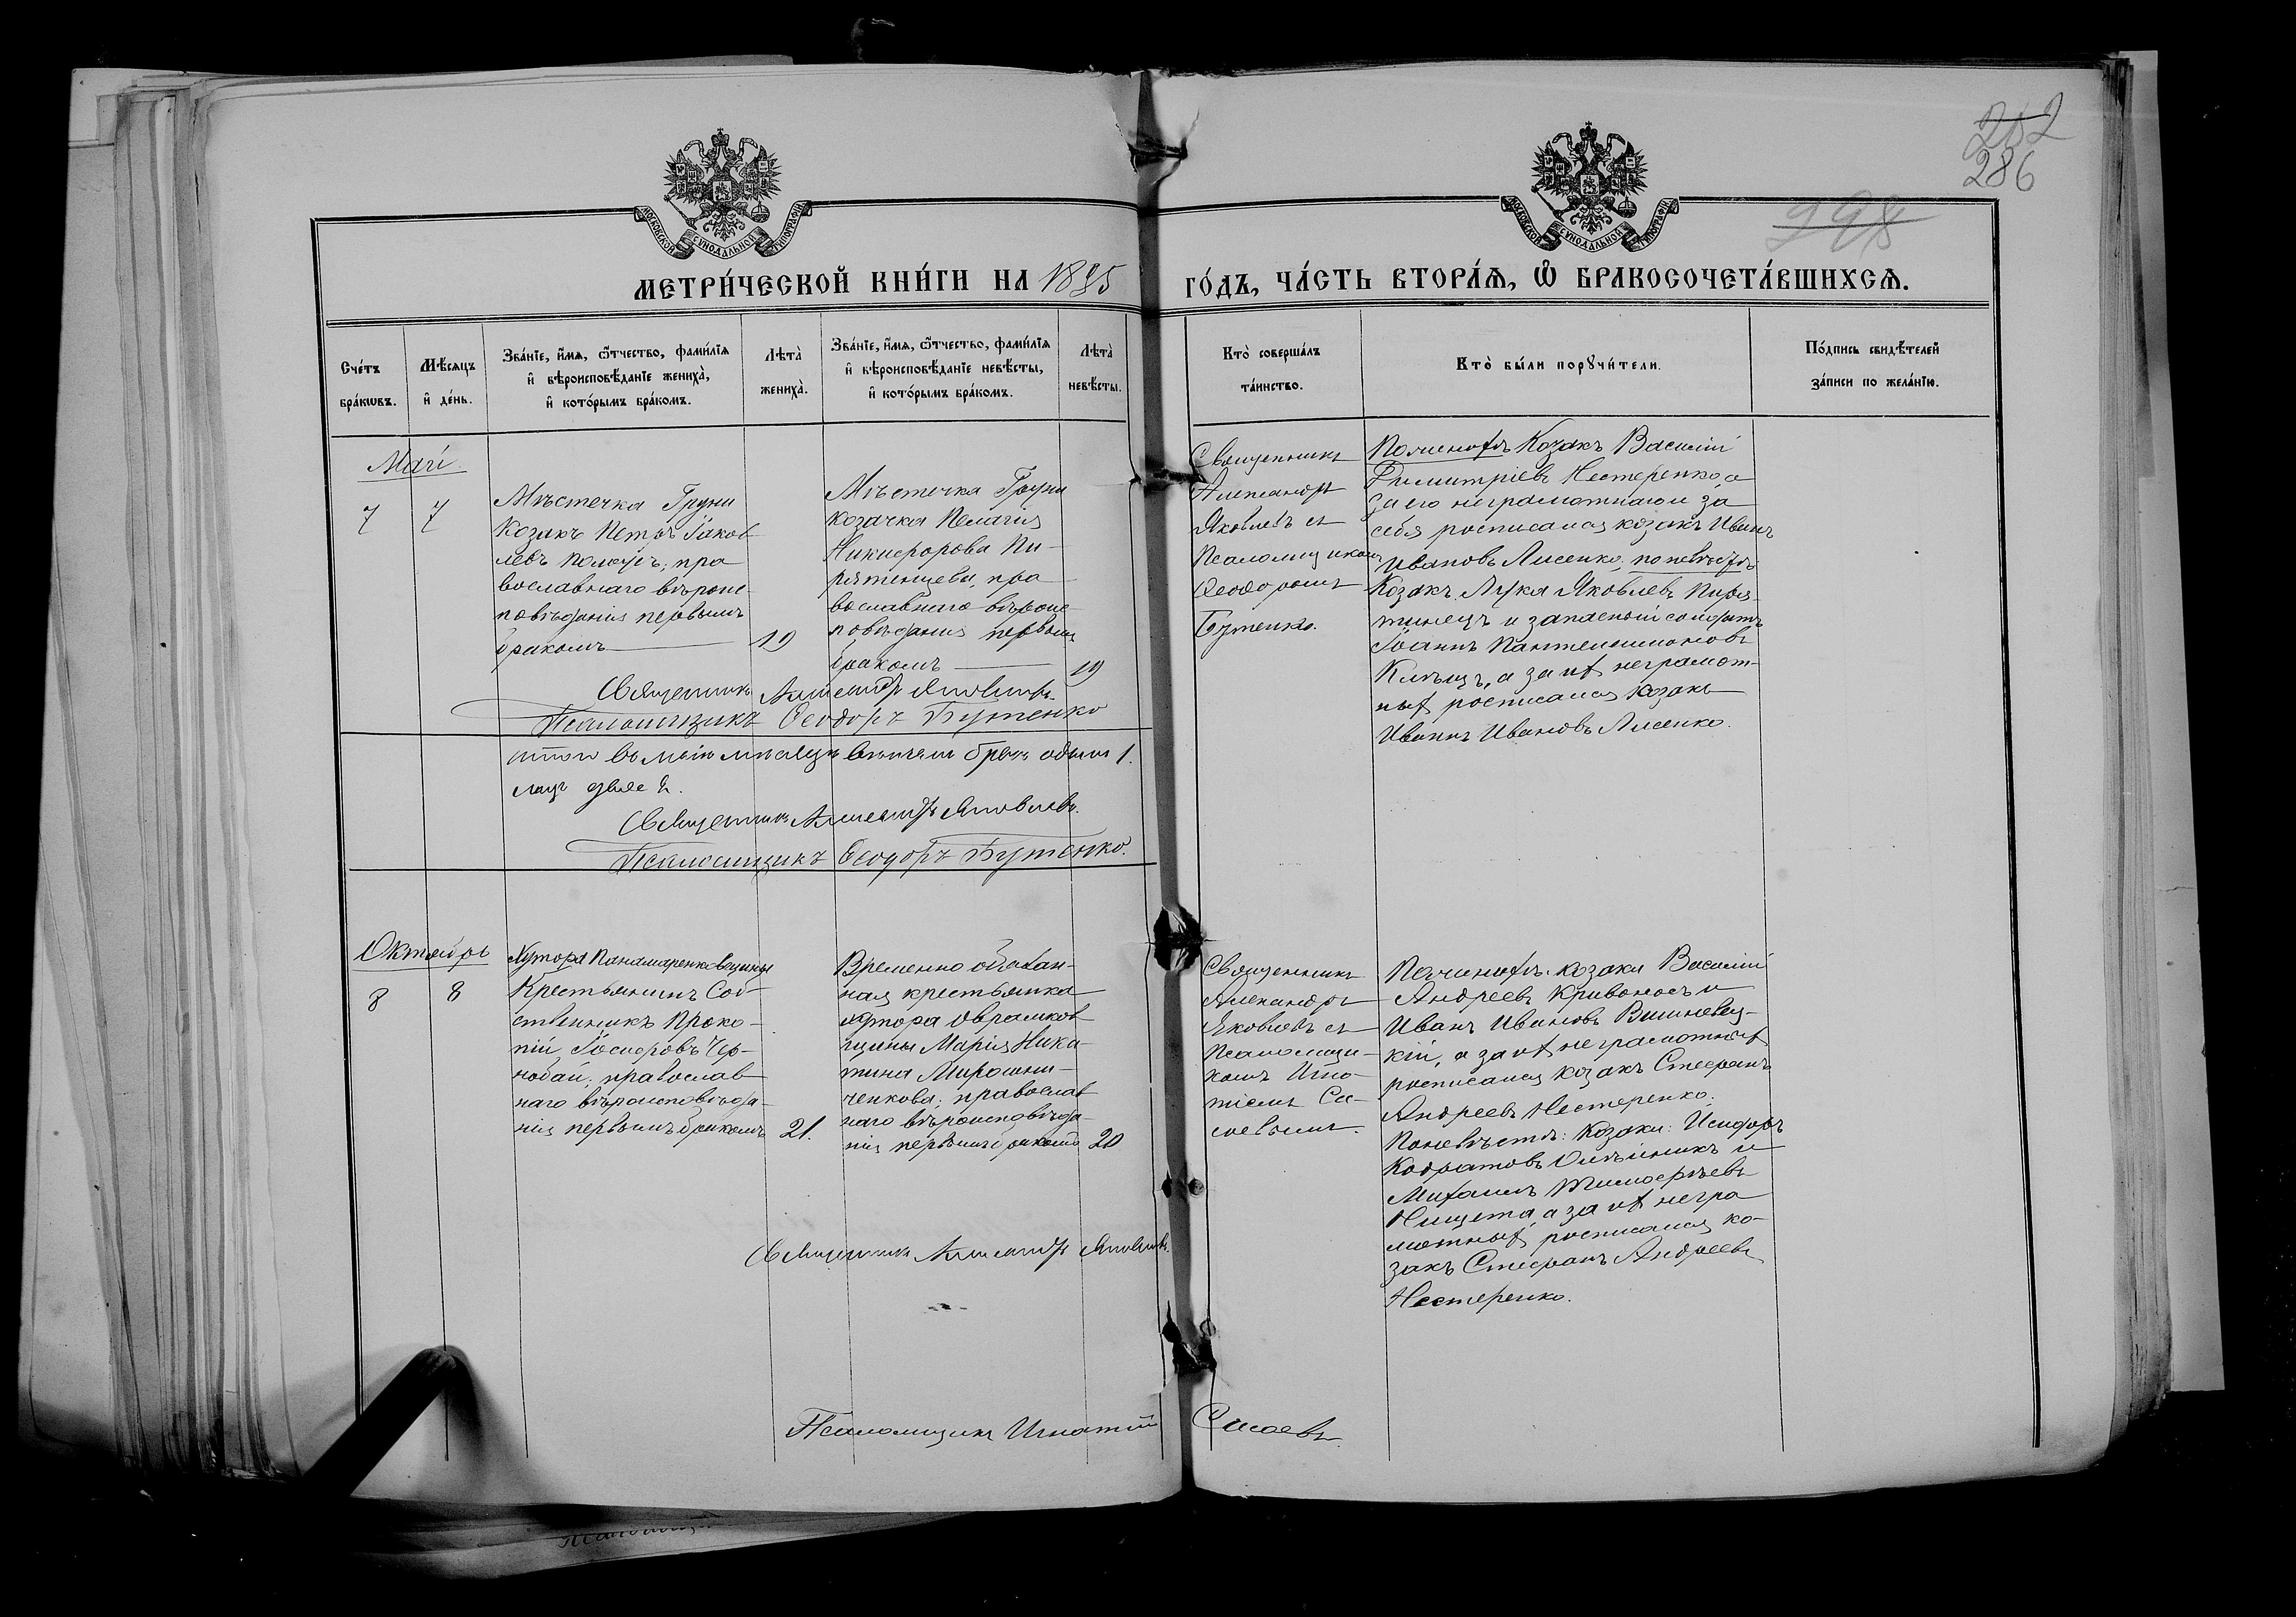 252
286
298
МОСКОВСКОЙ СѴНОДАЛЬНОЙ ТИПОГРАФІИ
МОСКОВСКОЙ СѴНОДАЛЬНОЙ ТИПОГРАФІИ
МЕТРИ́ЧЕСКОЙ КНИ́ГИ НА 1895 ГО́ДЪ, ЧА́СТЬ ВТОРА́Я, Ѿ БРАКОСОЧЕТА́ВШИХСЯ.
Сче́тъ
бра́кωвъ.
Мѣ́сяцъ
и҆ де́нь.
Зва́нїе, и҆́мя, ѻ҆́тчество, фами́лїя
и҆ вѣроисповѣ́данїе жениха̀,
и҆ кото́рымъ бра́комъ.
Лѣта̀
жениха̀.
Зва́нїе, и҆́мя, ѻ҆́тчество, фами́лїя
и҆ вѣроисповѣ́данїе невѣ́сты,
и҆ кото́рымъ бра́комъ.
Лѣта̀
невѣ́сты.
Кто̀ соверша́лъ
та́инство.
Кто̀ бы́ли порꙋчи́тели.
По́дпись свидѣ́телей
за́писи по жела́нїю.
Май
7
7
Мѣстечка Груни
Козакъ Петръ Іаков-
левъ; пра
вославнаго вѣроис-
повѣданія первымъ
бракомъ
19
Мѣстечка Груни
козачка Пелагія
Никифорова Пи-
рятинцева, пра
вославнаго вѣроис-
повѣданія первымъ
бракомъ
19
Священникъ
Александръ
Яковлевъ съ
Псаломщикомъ
Ѳеодоромъ
Бутенко.
По женихѣ Козакъ Василій
Димитріевъ Нестеренко а
за его неграмотнаго и за
себя росписался козакъ Иванъ
Ивановъ Лисенко; по невѣстѣ
Козакъ Лука Яковлевъ Пиря-
тинецъ и запасный солдатъ
Іоаннъ Пантелеимоновъ
а за ихъ неграмот-
ныхъ росписался козакъ
Иванъ Ивановъ Лисенко.
Священникъ Александръ Яковлевъ.
Псаломщикъ Ѳеодоръ Бутенко
Итого въ маѣ мѣсяцѣ бракъ одинъ 1.
лицъ двое 2.
Священникъ Александръ Яковлевъ.
Псаломщикъ Ѳеодоръ Бутенко.
Октябрь
8
8
Хутора Панамаренковщины
Крестьянинъ Соб-
ственникъ Проко-
пій Іосифовъ Чер-
нобай; православ
наго вѣроисповѣда-
нія первымъ бракомъ
21.
Временно обязан-
ная крестьянка
хутора Овраиков
щины Марія Ники-
тина Мирошни-
ченкова; православ
наго вѣроисповѣда-
нія первымъ бракомъ
20
Священникъ
Александръ
Яковлевъ съ
Псаломщи-
комъ Игна-
тіемъ Сы-
соевымъ.
По женихѣ: козаки Василій
Андреевъ Кривоносъ и
Иванъ Ивановъ Вишневец-
кій, а за ихъ неграмотныхъ
росписался козакъ Стефанъ
Андреевъ Нестеренко.
По невѣстѣ: Козаки: Исидоръ
Кодратовъ Олѣйникъ и
Михаилъ Тимофѣевъ
Нищета, а за ихъ негра
мотныхъ росписался ко-
закъ Стефанъ Андреевъ
Нестеренко.
Священникъ Александръ Яковлевъ.
Псаломщикъ Игнатій Сысоевъ.